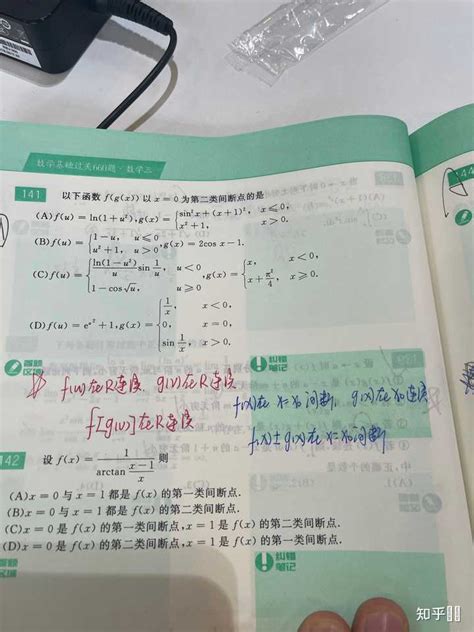 数学基础过关660题·数学三
141 以下函数 f(g(x)) 以 x=0 为第二类间断点的是
(A) f(u)=ln(1+u²), g(x)={ sin²x+(x+1)², x≤0,
x²+1, x>0.
(B) f(u)={ 1-u, u≤0
u²+1, u>0, g(x)=2cos x-1.
(C) f(u)={ ln(1-u²)/u sin 1/u, u<0
1-cos√u, u≥0, g(x)={ x, x<0,
x+π²/4, x≥0.
(D) f(u)=eᵘ+1, g(x)={ 1/x, x<0,
0, x=0,
sin 1/x, x>0.
答题区域
纠错笔记
f(u)在R连度 g(x)在R连度
f[g(x)]在R连度
f(x)在 x=x₀间断, g(x)在x₀连度
f(x)±g(x)在x=x₀间断
142 设 f(x)=1/(arctan (x-1)/x) 则
(A) x=0 与 x=1 都是 f(x) 的第一类间断点.
(B) x=0 与 x=1 都是 f(x) 的第二类间断点.
(C) x=0 是 f(x) 的第一类间断点, x=1 是 f(x) 的第二类间断点.
(D) x=0 是 f(x) 的第二类间断点, x=1 是 f(x) 的第一类间断点.
纠错笔记
144
知乎